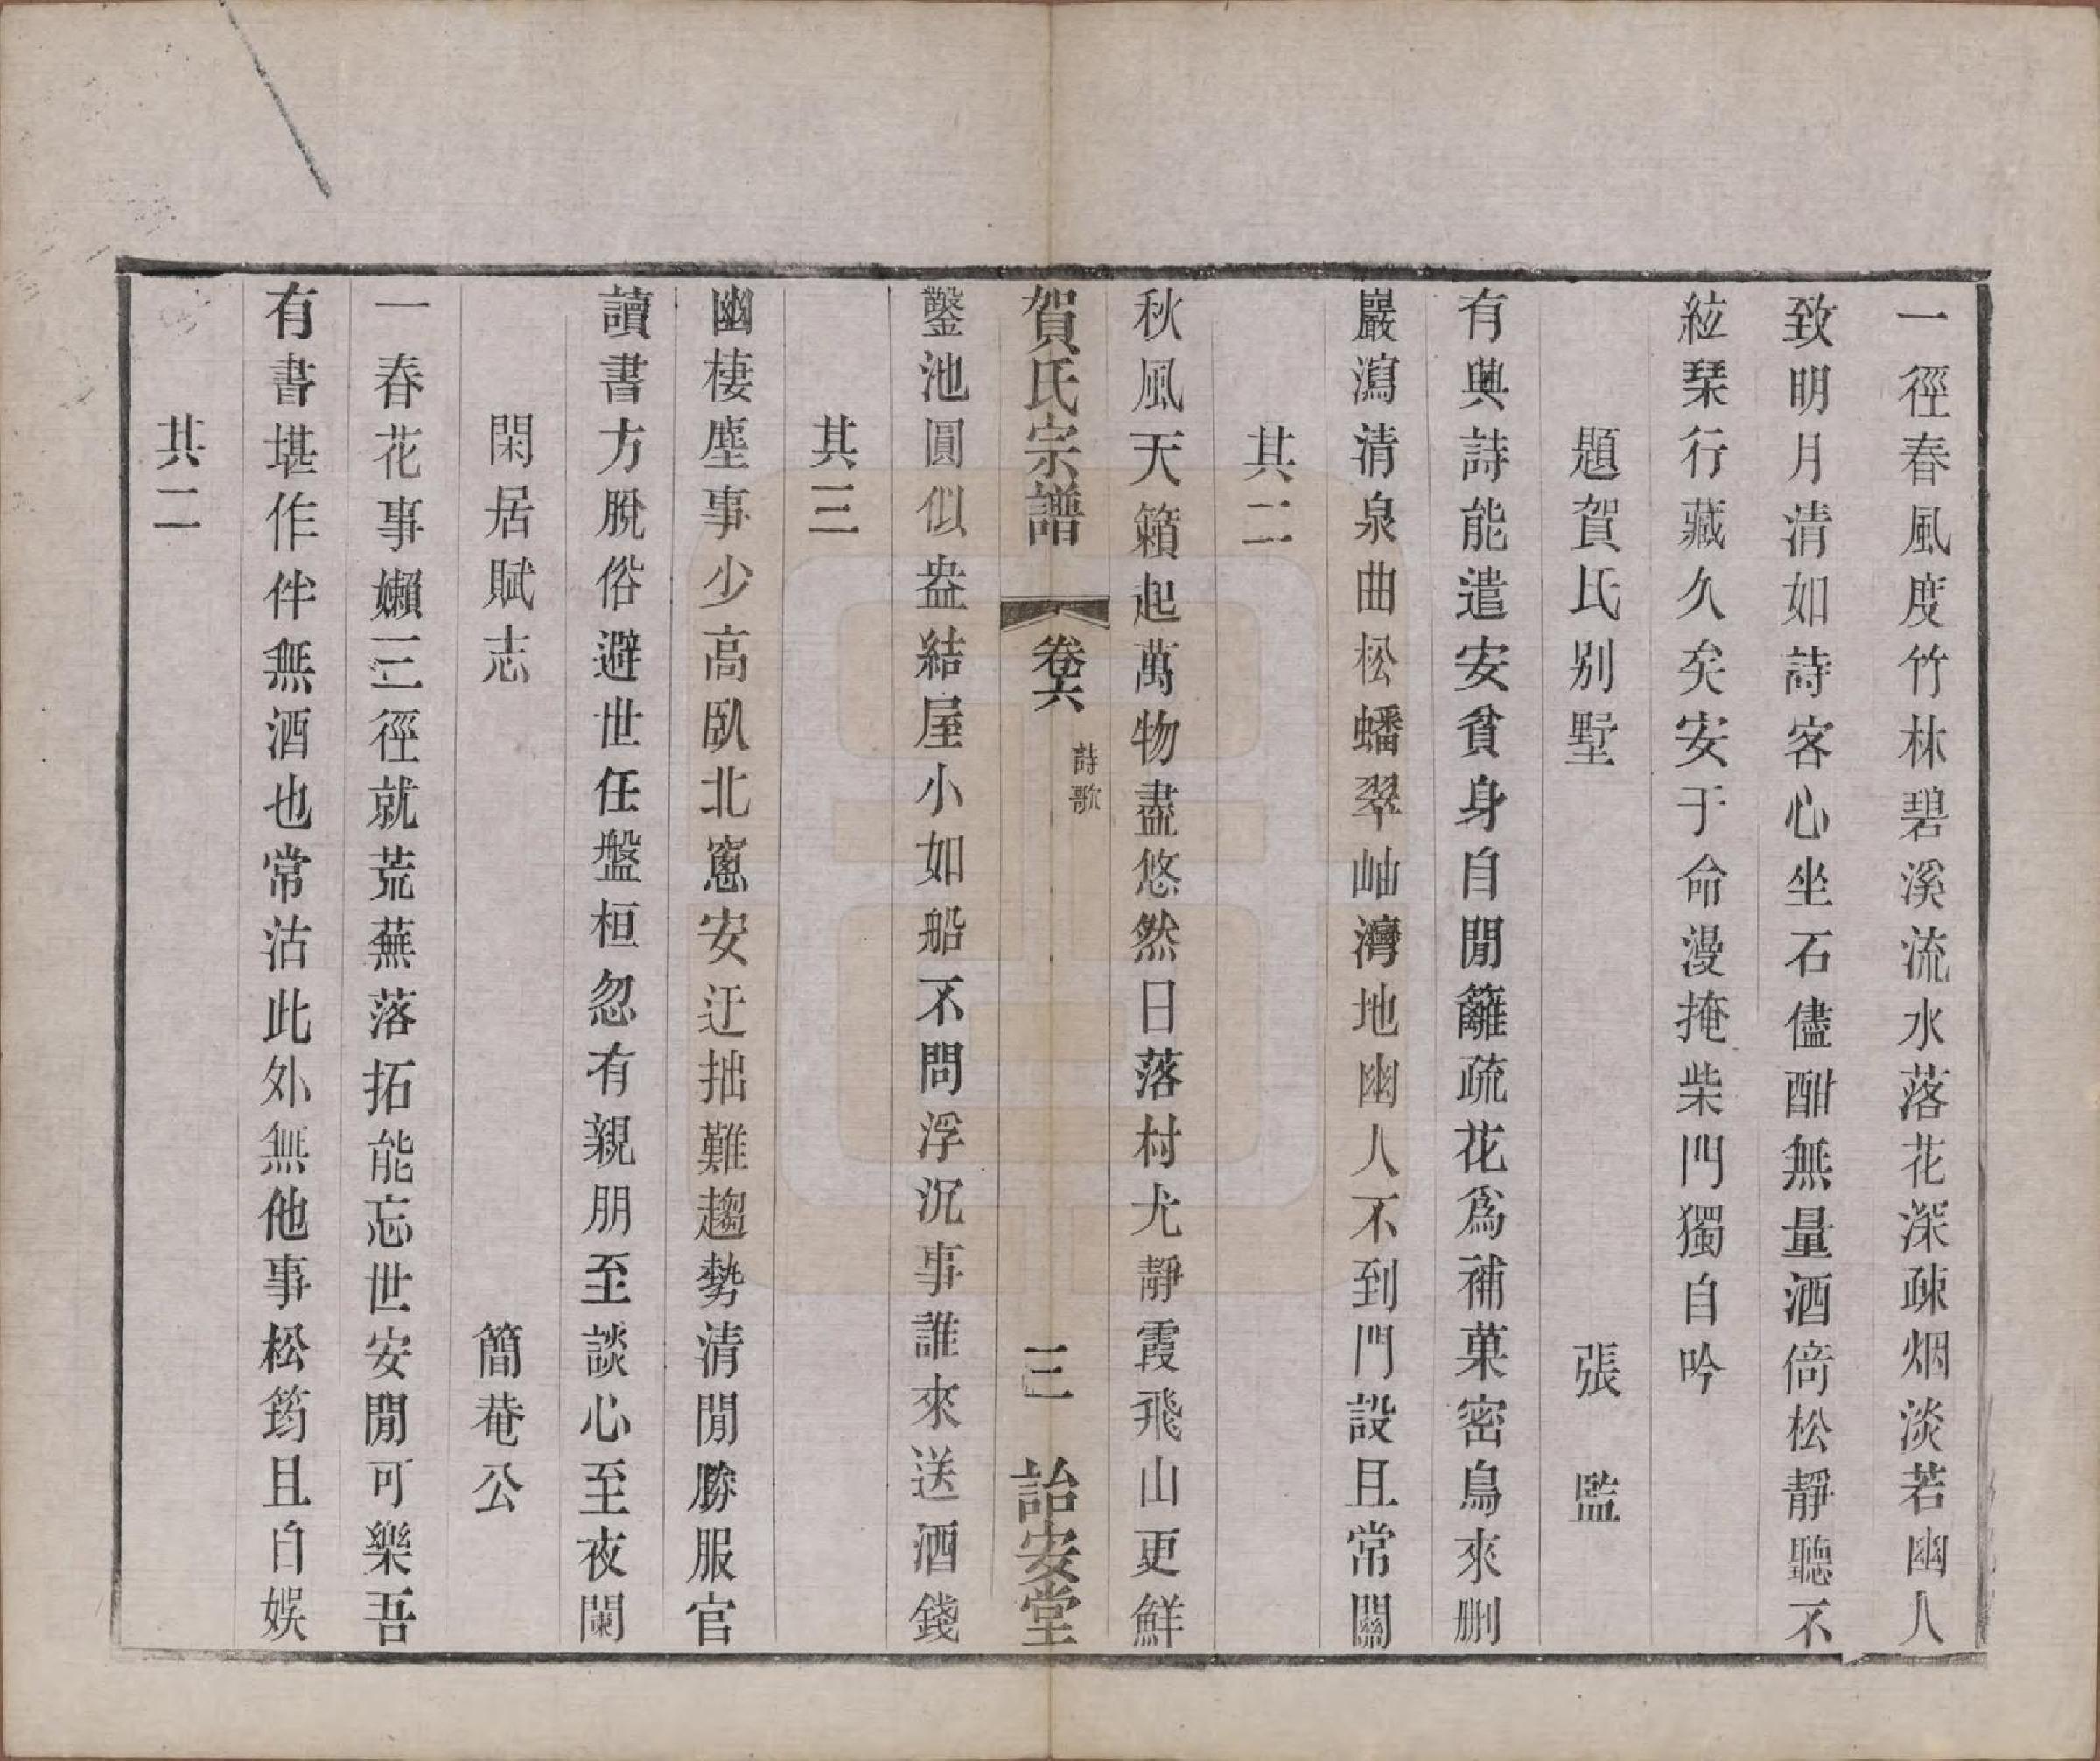 一徑春風度竹林碧溪流水落花深疎烟淡若幽人
致明月清如詩客心坐石儘酣無量酒倚松靜聽不
絃琹行藏久矣安于命漫掩柴門獨自吟
題賀氏別墅　張監
有興詩能遣安貧身自閒籬疏花爲補菓密鳥來删
巖瀉清泉曲松蟠翠岫灣地幽人不到門設且常關
其二
秋風天籟起萬物盡悠然日落村尤靜霞飛山更鮮
賀氏宗譜　卷六　詩歌　三　詒安堂
鑿池圓似盎結屋小如船不問浮沉事誰來送酒錢
其三
幽棲塵事少高臥北窻安迂拙難趨勢清閒勝服官
讀書方脫俗避世任盤桓忽有親朋至談心至夜闌
閑居賦志　簡菴公
一春花事嬾三徑就荒蕪落拓能忘世安閒可樂吾
有書堪作伴無酒也常沽此外無他事松筠且自娛
其二